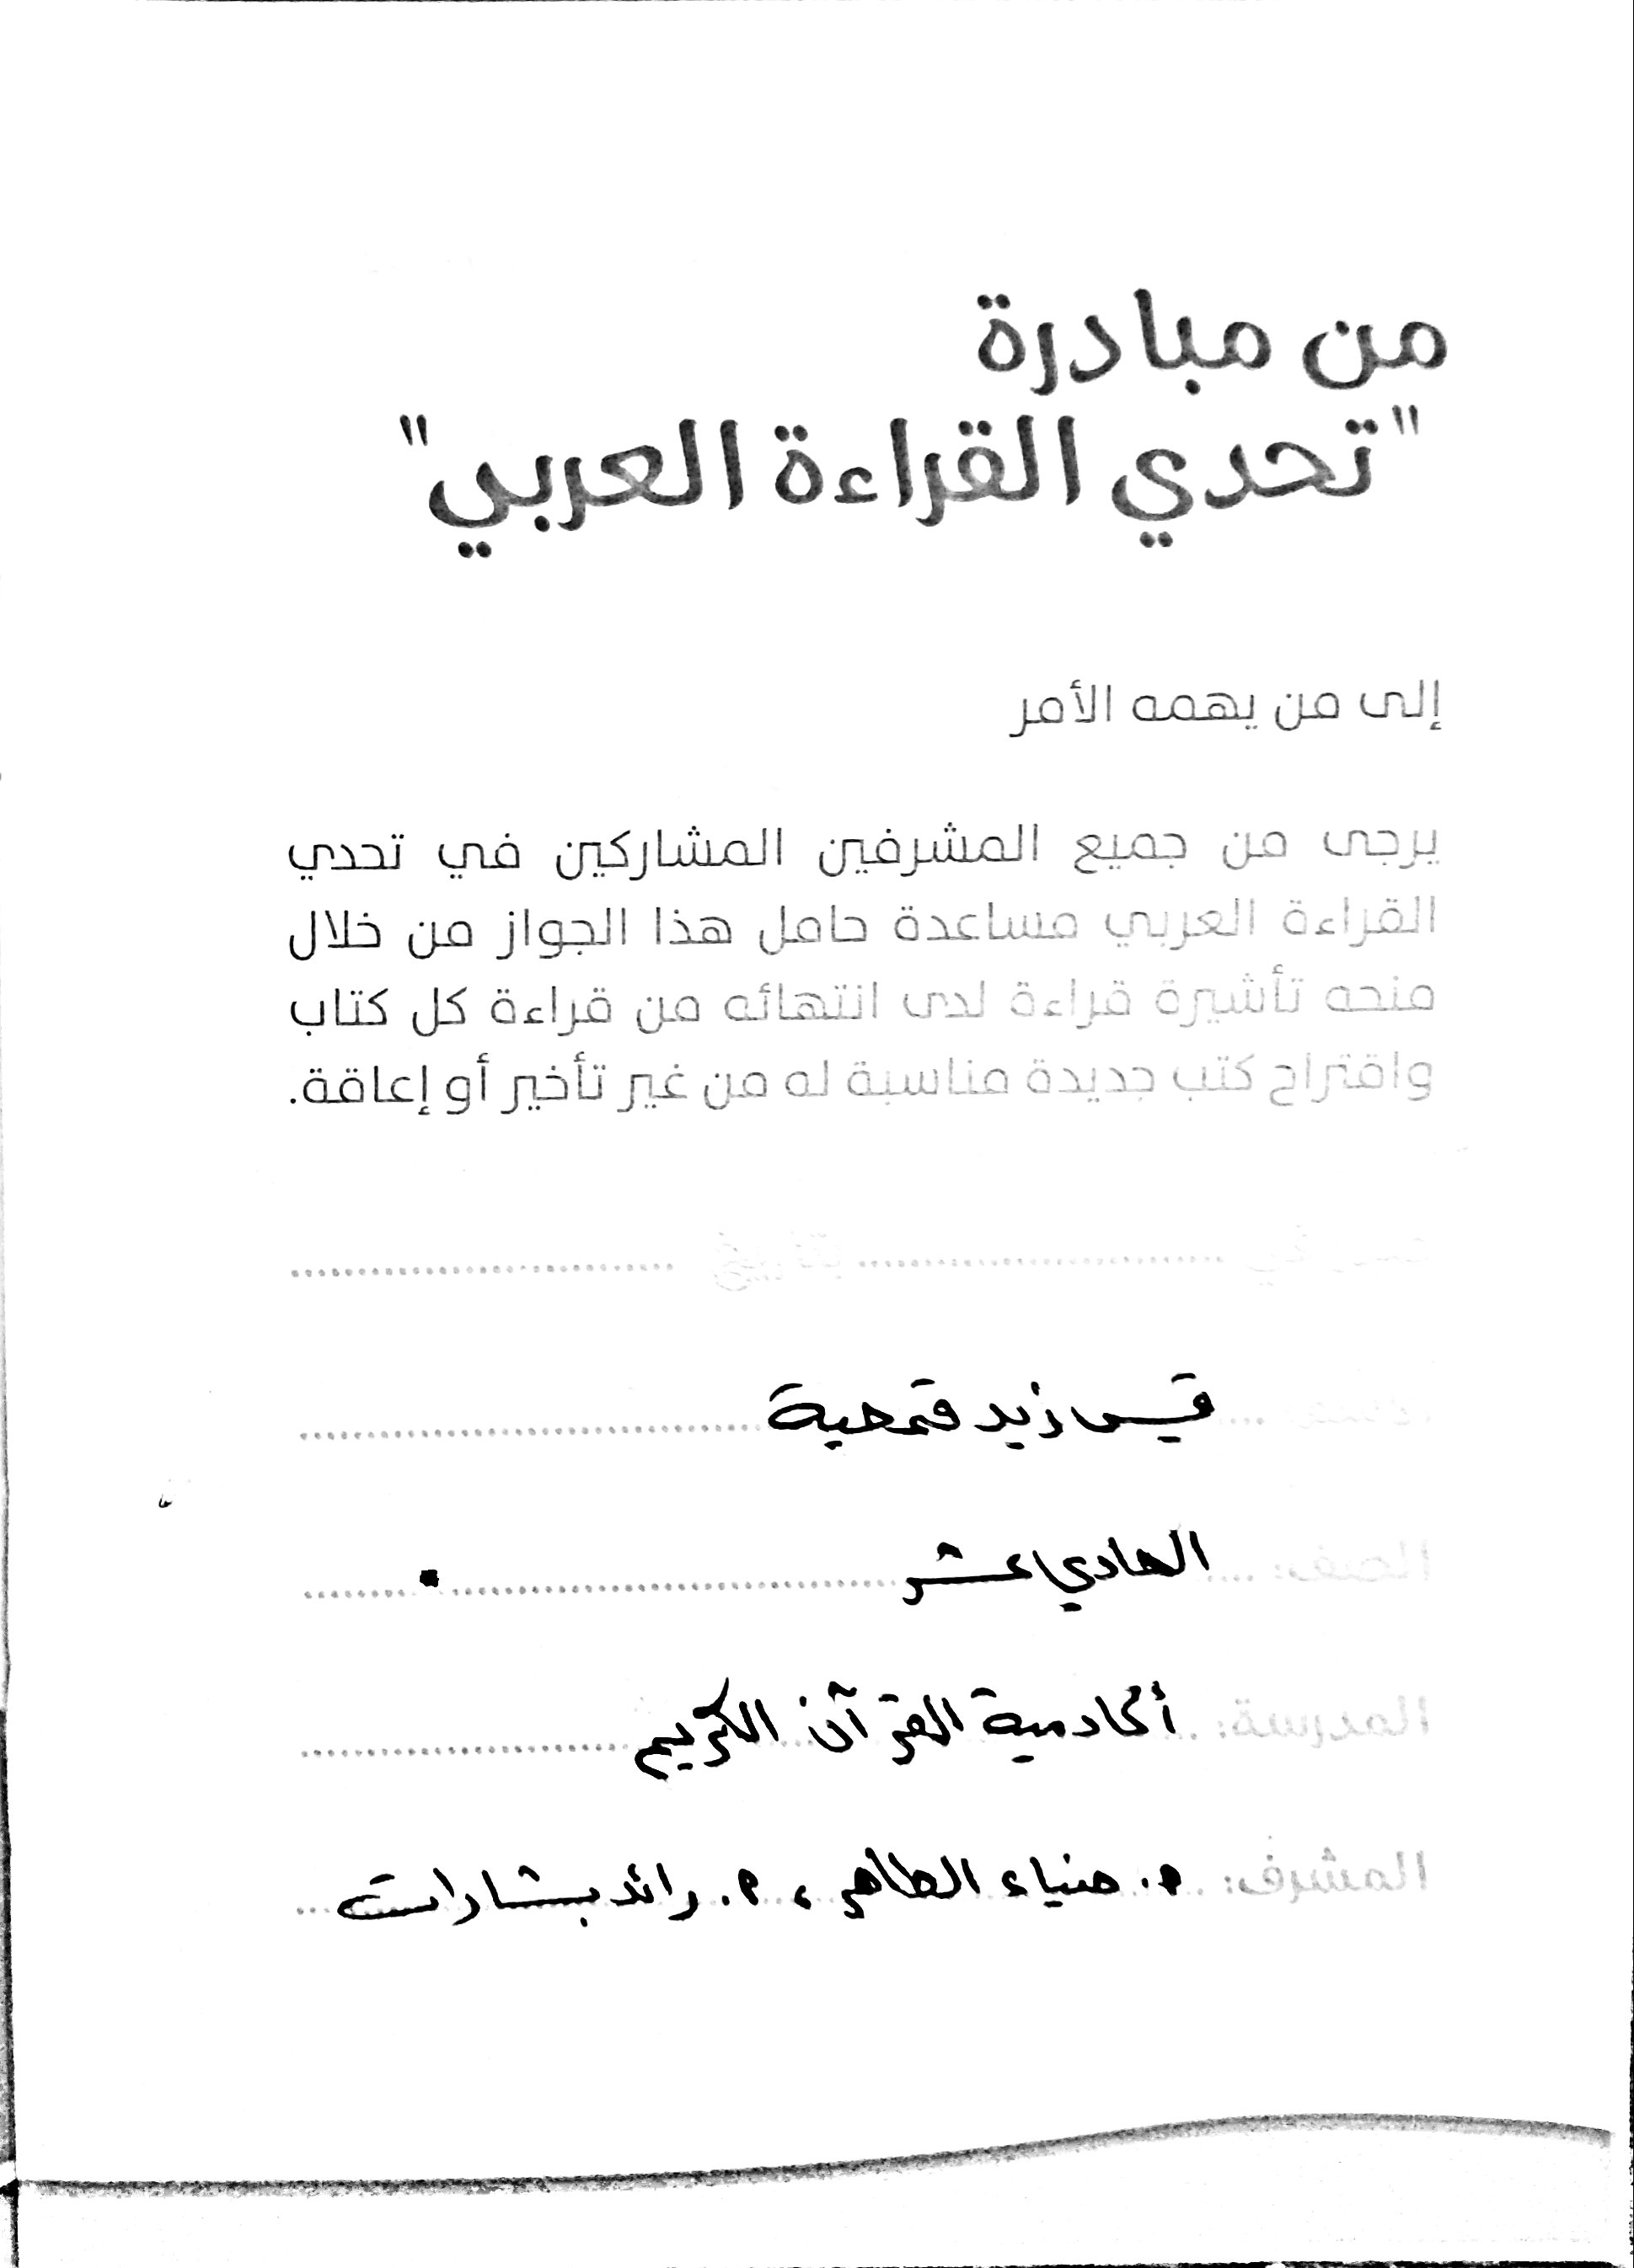 من مبادرة
"تحدي القراءة العربي"
إلى من يهمه الأمر
يرجى من جميع المشرفين المشاركين في تحدي
القراءة العربي مساعدة حامل هذا الجواز من خلال
منحه تأشيرة قراءة لدى انتهائه من قراءة كل كتاب
واقتراح كتب جديدة مناسبة له من غير تأخير أو إعاقة.
قيس زيد قمحية
الصف: الحادي عشر
المدرسة: أكادمية القرآن الكريم
المشرف: م. ضياء الطاهر، م. رائد بشارات